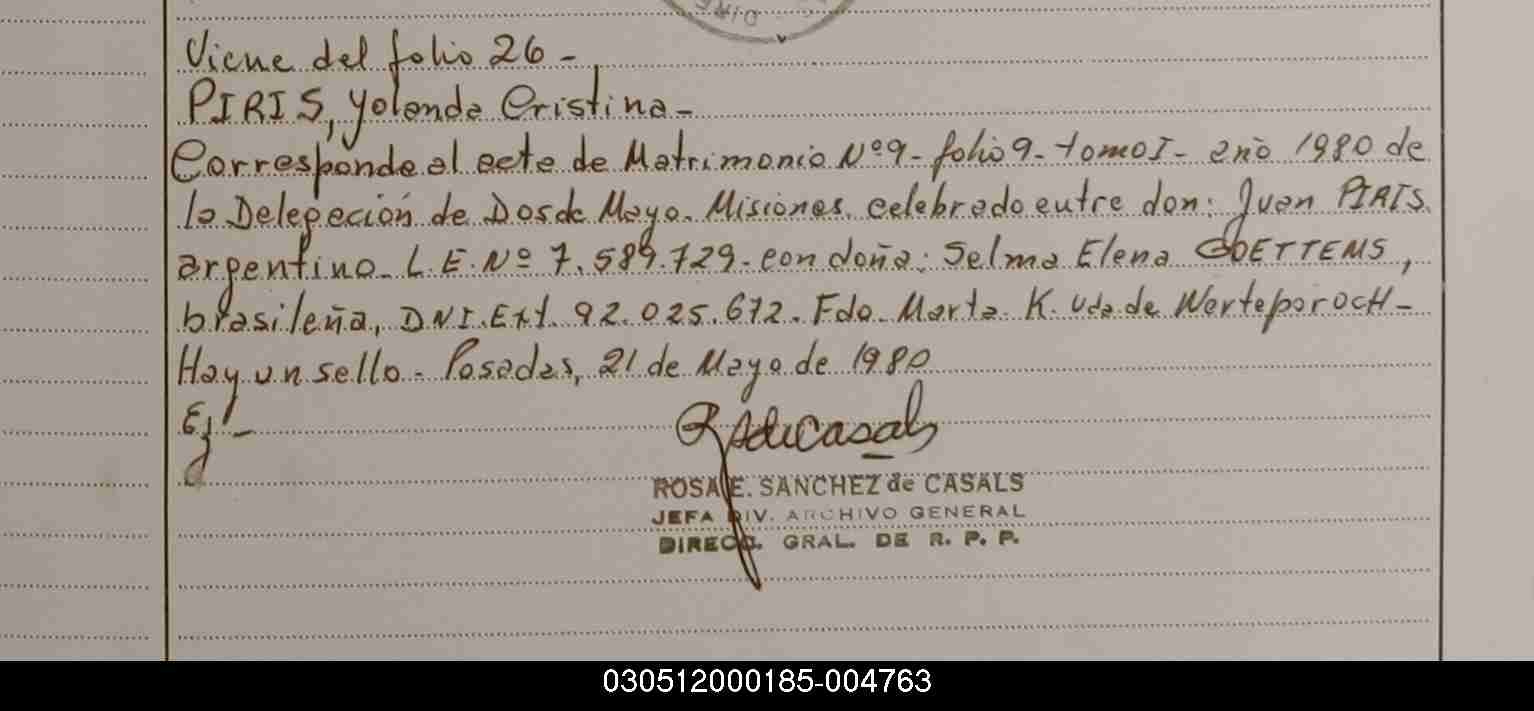 Viene del folio 26 -
PIRIS, Yolanda Cristina -
Corresponde al acta de Matrimonio Nº 9 - folio 9 - tomo I - año 1980 de
la Delegación de Dos de Mayo. Misiones. celebrado entre don: Juan PIRIS.
argentino. L.E. Nº 7.589.729 - con doña: Selma Elena GOETTEMS,
brasileña, DNI. Ext. 92.025.672. Fdo. Marta K. Vda de Werteporoch -
Hay un sello - Posadas, 21 de Mayo de 1980
ROSA E. SANCHEZ de CASALS
JEFA DIV. ARCHIVO GENERAL
DIRECC. GRAL. DE R. P. P.
030512000185-004763